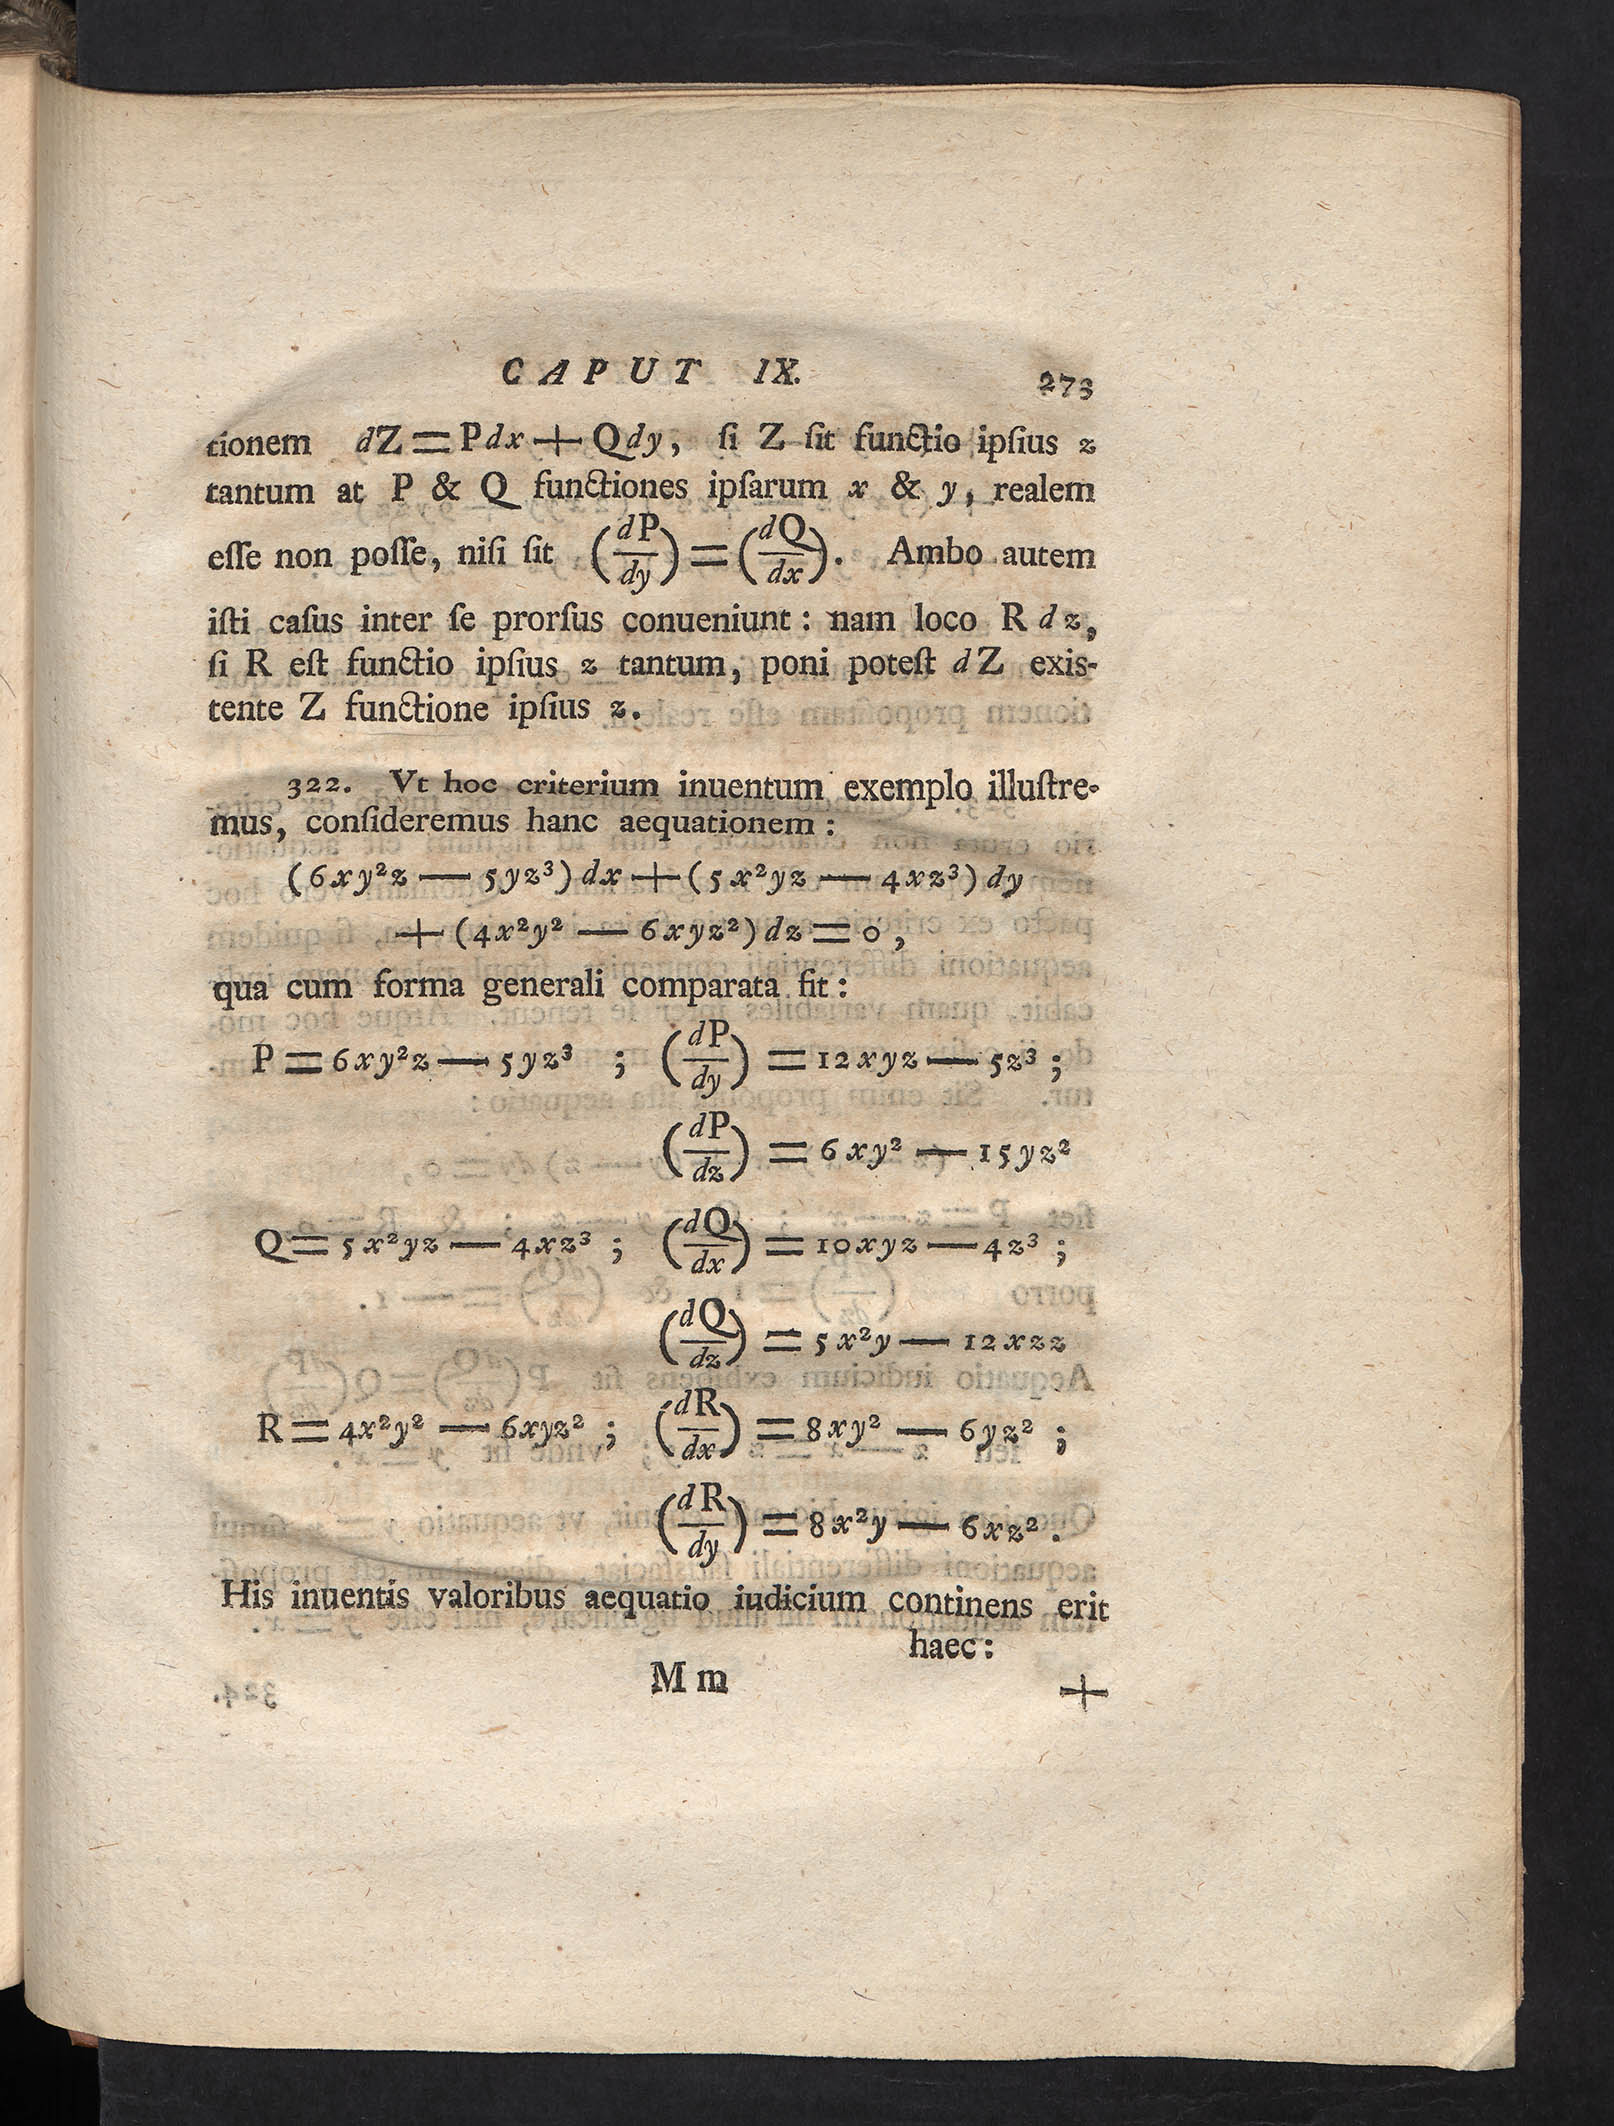 CAPUT IX.
273
tionem dZ=Pdx+Qdy, ſi Z ſit functio ipſius z
tantum at P & Q functiones ipſarum x & y, realem
eſſe non poſſe, niſi ſit (dP/dy)=(dQ/dx). Ambo autem
iſti caſus inter ſe prorſus conueniunt: nam loco R dz,
ſi R eſt functio ipſius z tantum, poni poteſt dZ exis-
tente Z functione ipſius z.
322. Vt hoc criterium inuentum exemplo illuſtre-
mus, conſideremus hanc aequationem:
(6xy²z — 5yz³) dx + (5x²yz — 4xz³) dy
+ (4x²y² — 6xyz²) dz = 0,
qua cum forma generali comparata fit:
P = 6xy²z — 5yz³ ; (dP/dy) = 12xyz — 5z³ ;
(dP/dz) = 6xy² — 15yz²
Q = 5x²yz — 4xz³ ; (dQ/dx) = 10xyz — 4z³ ;
(dQ/dz) = 5x²y — 12xzz
R = 4x²y² — 6xyz² ; (dR/dx) = 8xy² — 6yz² ;
(dR/dy) = 8x²y — 6xz².
His inuentis valoribus aequatio iudicium continens erit
haec:
M m
+